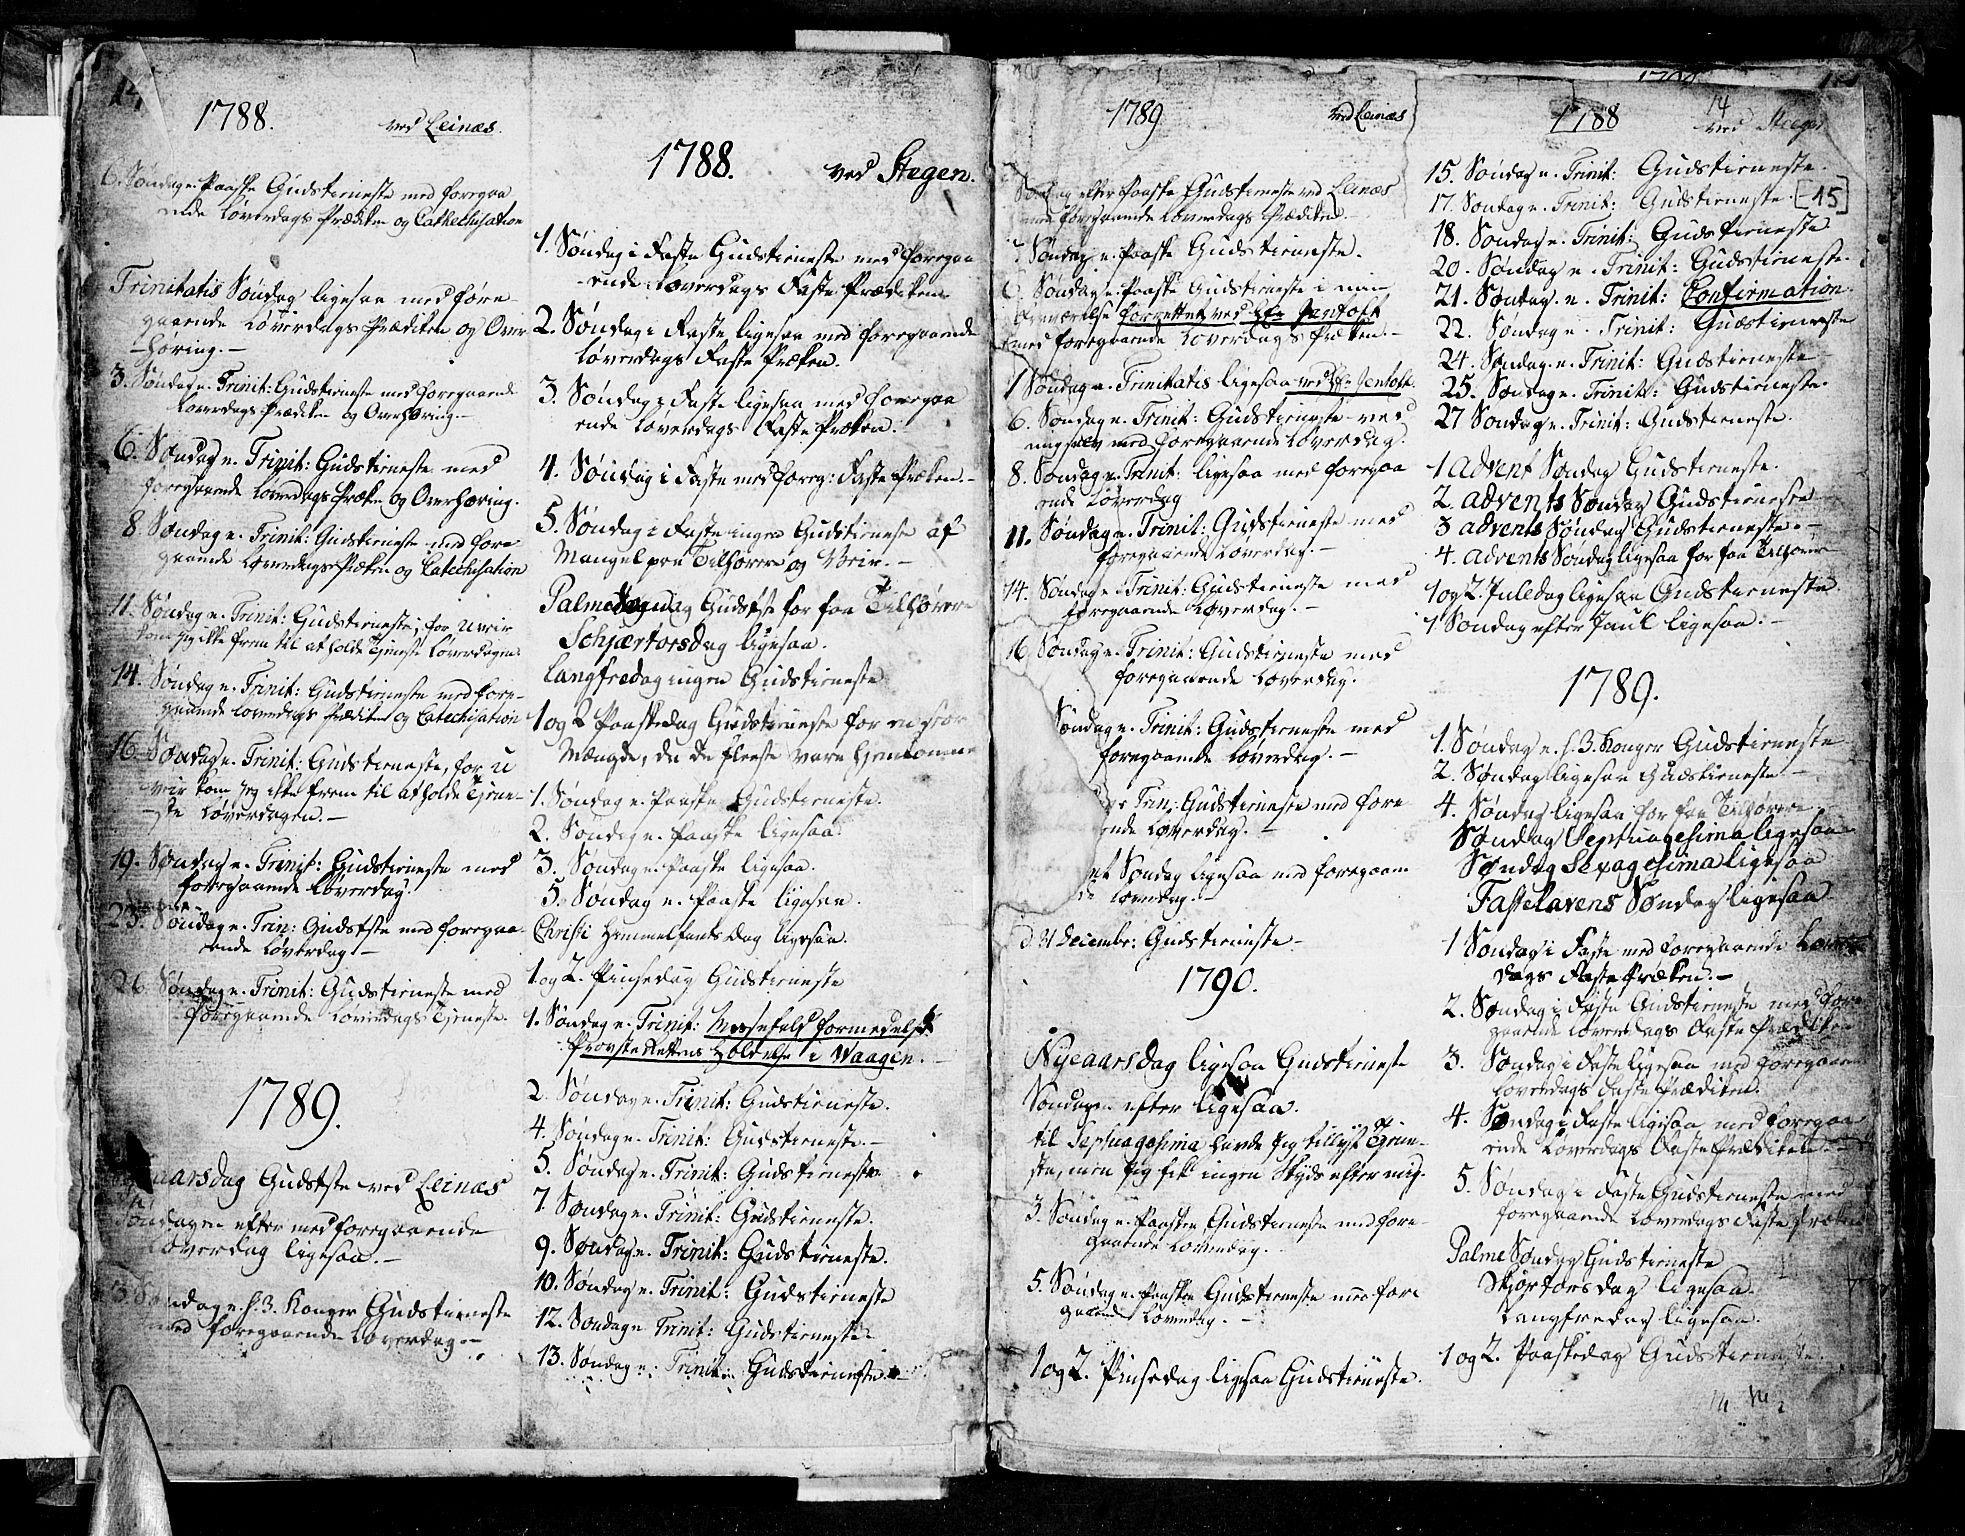 14
1788. ved Leines.
6. Søndag e. Paaske Gudstieneste med foregaa
ende Løverdags Prædiken og Cathechisation
Trinitatis Søndag ligesaa med fore-
gaaende Løverdags Prædiken og Over
-høring.-
3. Søndag e. Trinit: Gudstieneste med foregaaende
Løverdags Prædiken og Overhøring.-
6. Søndag e. Trinit: Gudstieneste med
foregaaende Løverdags Præken og Overhøring.
8. Søndag e. Trinit: Gudstieneste med fore
gaaende Løverdags Præken og Catechisation
11. Søndag e. Trinit: Gudstieneste; for Uveir
kom jeg ikke frem til at holde Tjeneste Løverdagen.
14. Søndag e. Trinit: Gudstieneste med fore-
gaaende Løverdags Prædiken og Catechisation
16. Søndag e. Trinit: Gudstieneste, for U
veir kom jeg ikke frem til at holde Tjene-
-ste Løverdagen.-
19. Søndag e. Trinit: Gudstieneste med
foregaaende Løverdag.
23. Søndag e. Trin: Gudstste med foregaa-
ende Løverdag.-
26. Søndag e. Trinit: Gudstieneste med
foregaaende Løverdags Tjeneste.
1789.
aarsdag Gudstste ved Leines
Søndagen efter med foregaaende
Løverdag ligesaa.-
3. Søndag e. h. 3. Konger Gudstieneste
med foregaaende Løverdag.-
1788. ved Stegen.
1. Søndag i Faste Gudstieneste med foregaa
-ende Løverdags Faste Prædiken
2. Søndag i Faste ligesaa med foregaaende
Løverdags Faste Præken.
3. Søndag i Faste ligesaa med foregaa
ende Løverdags Faste Præken.
4. Søndag i Faste med foreg: Faste Præken.-
5. Søndag i Faste ingen Gudstieneste af
Mangel paa Tilhørere og Veir.-
Palmesøndag Gudstste for faa Tilhørere
Schjærtorsdag ligesaa.
Langfredag ingen Gudstieneste
1 og 2 Paaskedag Gudstieneste for en stor
Mængde, da de fleeste vare hjemkomne
1. Søndag e. Paaske Gudstieneste.
2. Søndag e. Paaske ligesaa.
3. Søndag e. Paaske ligesaa.
5. Søndag e. Paaske ligesaa.
Christi Himmelfarts Dag ligesaa.
1. og 2. Pinsedag Gudstieneste
1. Søndag e. Trinit: Messefald formedelst
Provsterettens Holdelse i Waagen.
2. Søndag e. Trinit: Gudstieneste.
4. Søndag e. Trinit: Gudstieneste.-
5. Søndag e. Trinit: Gudstieneste
7. Søndag e. Trinit: Gudstieneste.
9. Søndag e. Trinit: Gudstieneste.
10. Søndag e. Trinit: Gudstieneste
12. Søndag e. Trinit: Gudstieneste
13. Søndag e. Trinit: Gudstieneste
1789 ved Leines
Søndag efter Paaske Gudstieneste ved Leines
med foregaaende Løverdags Prædiken.
Søndag e. Paaske Gudstieneste.
6 Søndag e. Paaske Gudstieneste i min
Fraværelse forrettet ved Hr Jentoft
med foregaaende Løverdags Præken.-
1 Søndag e. Trinitatis ligesaa ved Hr Jentoft.
6. Søndag e. Trinit: Gudstieneste ved
mig selv med foregaaende Løverdag.
8. Søndag e. Trinit: ligesaa med foregaa
ende Løverdag
11. Søndag e. Trinit: Gudstieneste med
foregaaende Løverdag.-
14. Søndag e. Trinit: Gudstieneste med
foregaaende Løverdag.-
16 Søndag e. Trinit: Gudstieneste med
foregaaende Løverdag.
Søndag e. Trinit: Gudstieneste med
foregaaende Løverdag.-
Trin: Gudstieneste med fore
ende Løverdag.-
Søndag ligesaa med foregaaen
de Løverdag.-
d. 21 Decembr: Gudstieneste-
1790.
Nyeaarsdag ligesaa Gudstieneste
Søndagen efter ligesaa.
til Septuagesima havde jeg tillyst Tjene-
ste, men jeg fik ingen Skyds efter mig.
3 Søndag e. Paaske Gudstieneste med fore-
gaaende Løverdag.
5. Søndag e. Paaske Gudstieneste med fore
gaaende Løverdag.-
1 og 2. Pinsedag ligesaa Gudstieneste.
1788 14
ved Steegen
15. Søndag e. Trinit: Gudstieneste.
17. Søndag e. Trinit: Gudstieneste. [15]
18. Søndag e. Trinit: Gudstieneste
20. Søndag e. Trinit: Gudstieneste.
21. Søndag e. Trinit: Confirmation.
22. Søndag e. Trinit: Gudstieneste
24. Søndag e. Trinit: Gudstieneste
25. Søndag e. Trinit: Gudstieneste.
27 Søndag e. Trinit: Gudstieneste.
1 Advent Søndag Gudstieneste.
2. Advents Søndag Gudstieneste
3 Advents Søndag Gudstieneste.-
4. Advents Søndag ligesaa for faa Tilhørere
1 og 2. Juledag ligesaa Gudstieneste
1 Søndag efter Juul ligesaa.-
1789.
1. Søndag e. h. 3. Konger Gudstieneste
2. Søndag ligesaa Gudstieneste.-
4. Søndag ligesaa for faa Tilhørere
Søndag Septuagesima ligesaa
Søndag Sexagesima ligesaa
Fastelavens Søndag ligesaa
1 Søndag i Faste med foregaaende Løver
dags Faste Præken.-
2. Søndag i Faste Gudstieneste med fore
gaaende Løverdags Faste Prædiken
3. Søndag i Faste ligesaa med foregaaen
Løverdags Faste Prædiken.
4. Søndag i Faste ligesaa med foregaa
ende Løverdags Faste Prædiken.-
5. Søndag i Faste Gudstieneste med
foregaaende Løverdags Faste Præken
Palme Søndag Gudstieneste
Skjertorsdag ligesaa.
Langfredag ligesaa.
1 og 2. Paaskedag Gudstieneste.